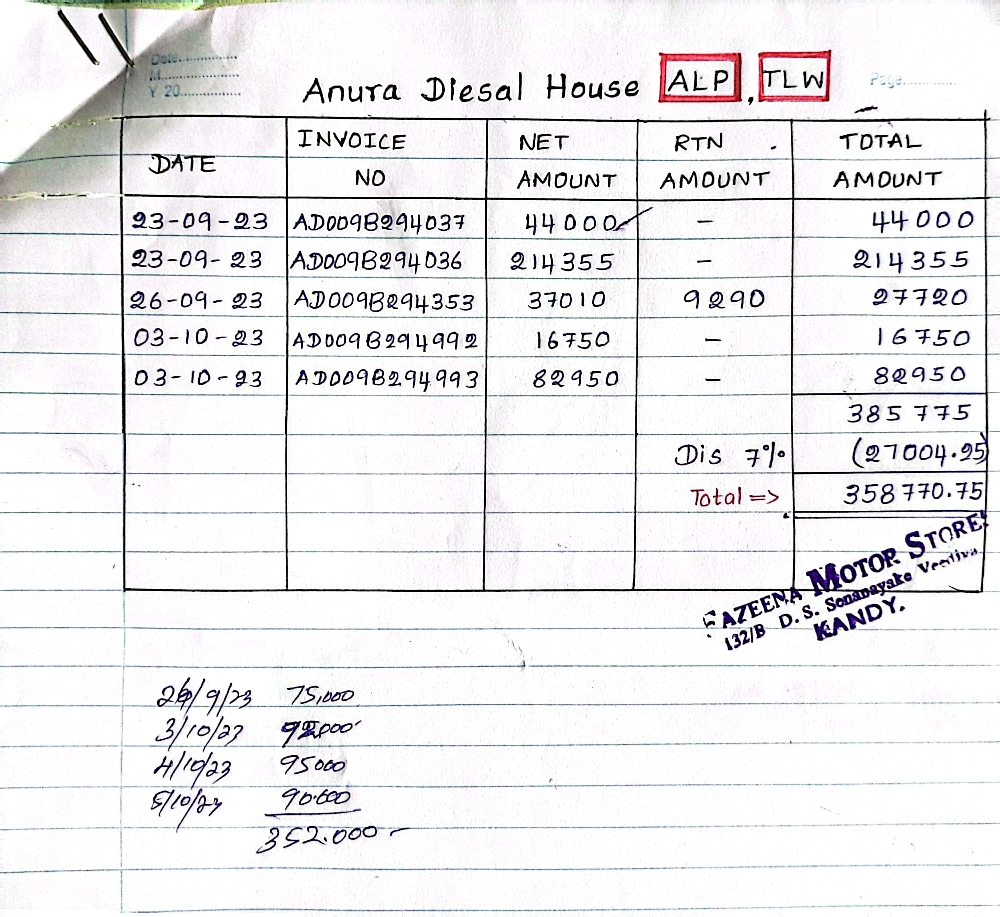 Date................
M.....................
Y 20................
Page..............
Anura Diesal House ALP, TLW
DATE INVOICE NO NET AMOUNT RTN AMOUNT TOTAL AMOUNT
23-09-23 AD009B294037 44000 - 44000
23-09-23 AD009B294036 214355 - 214355
26-09-23 AD009B294353 37010 9290 27720
03-10-23 AD009B294992 16750 - 16750
03-10-23 AD009B294993 82950 - 82950
385775
Dis 7% (27004.25)
Total => 358770.75
FAZEENA MOTOR STORES
132/B D. S. Senanayake Veediya
KANDY.
/9/23 75,000
3/10/23 92,000
4/10/23 95000
5/10/23 90.000
352.000-